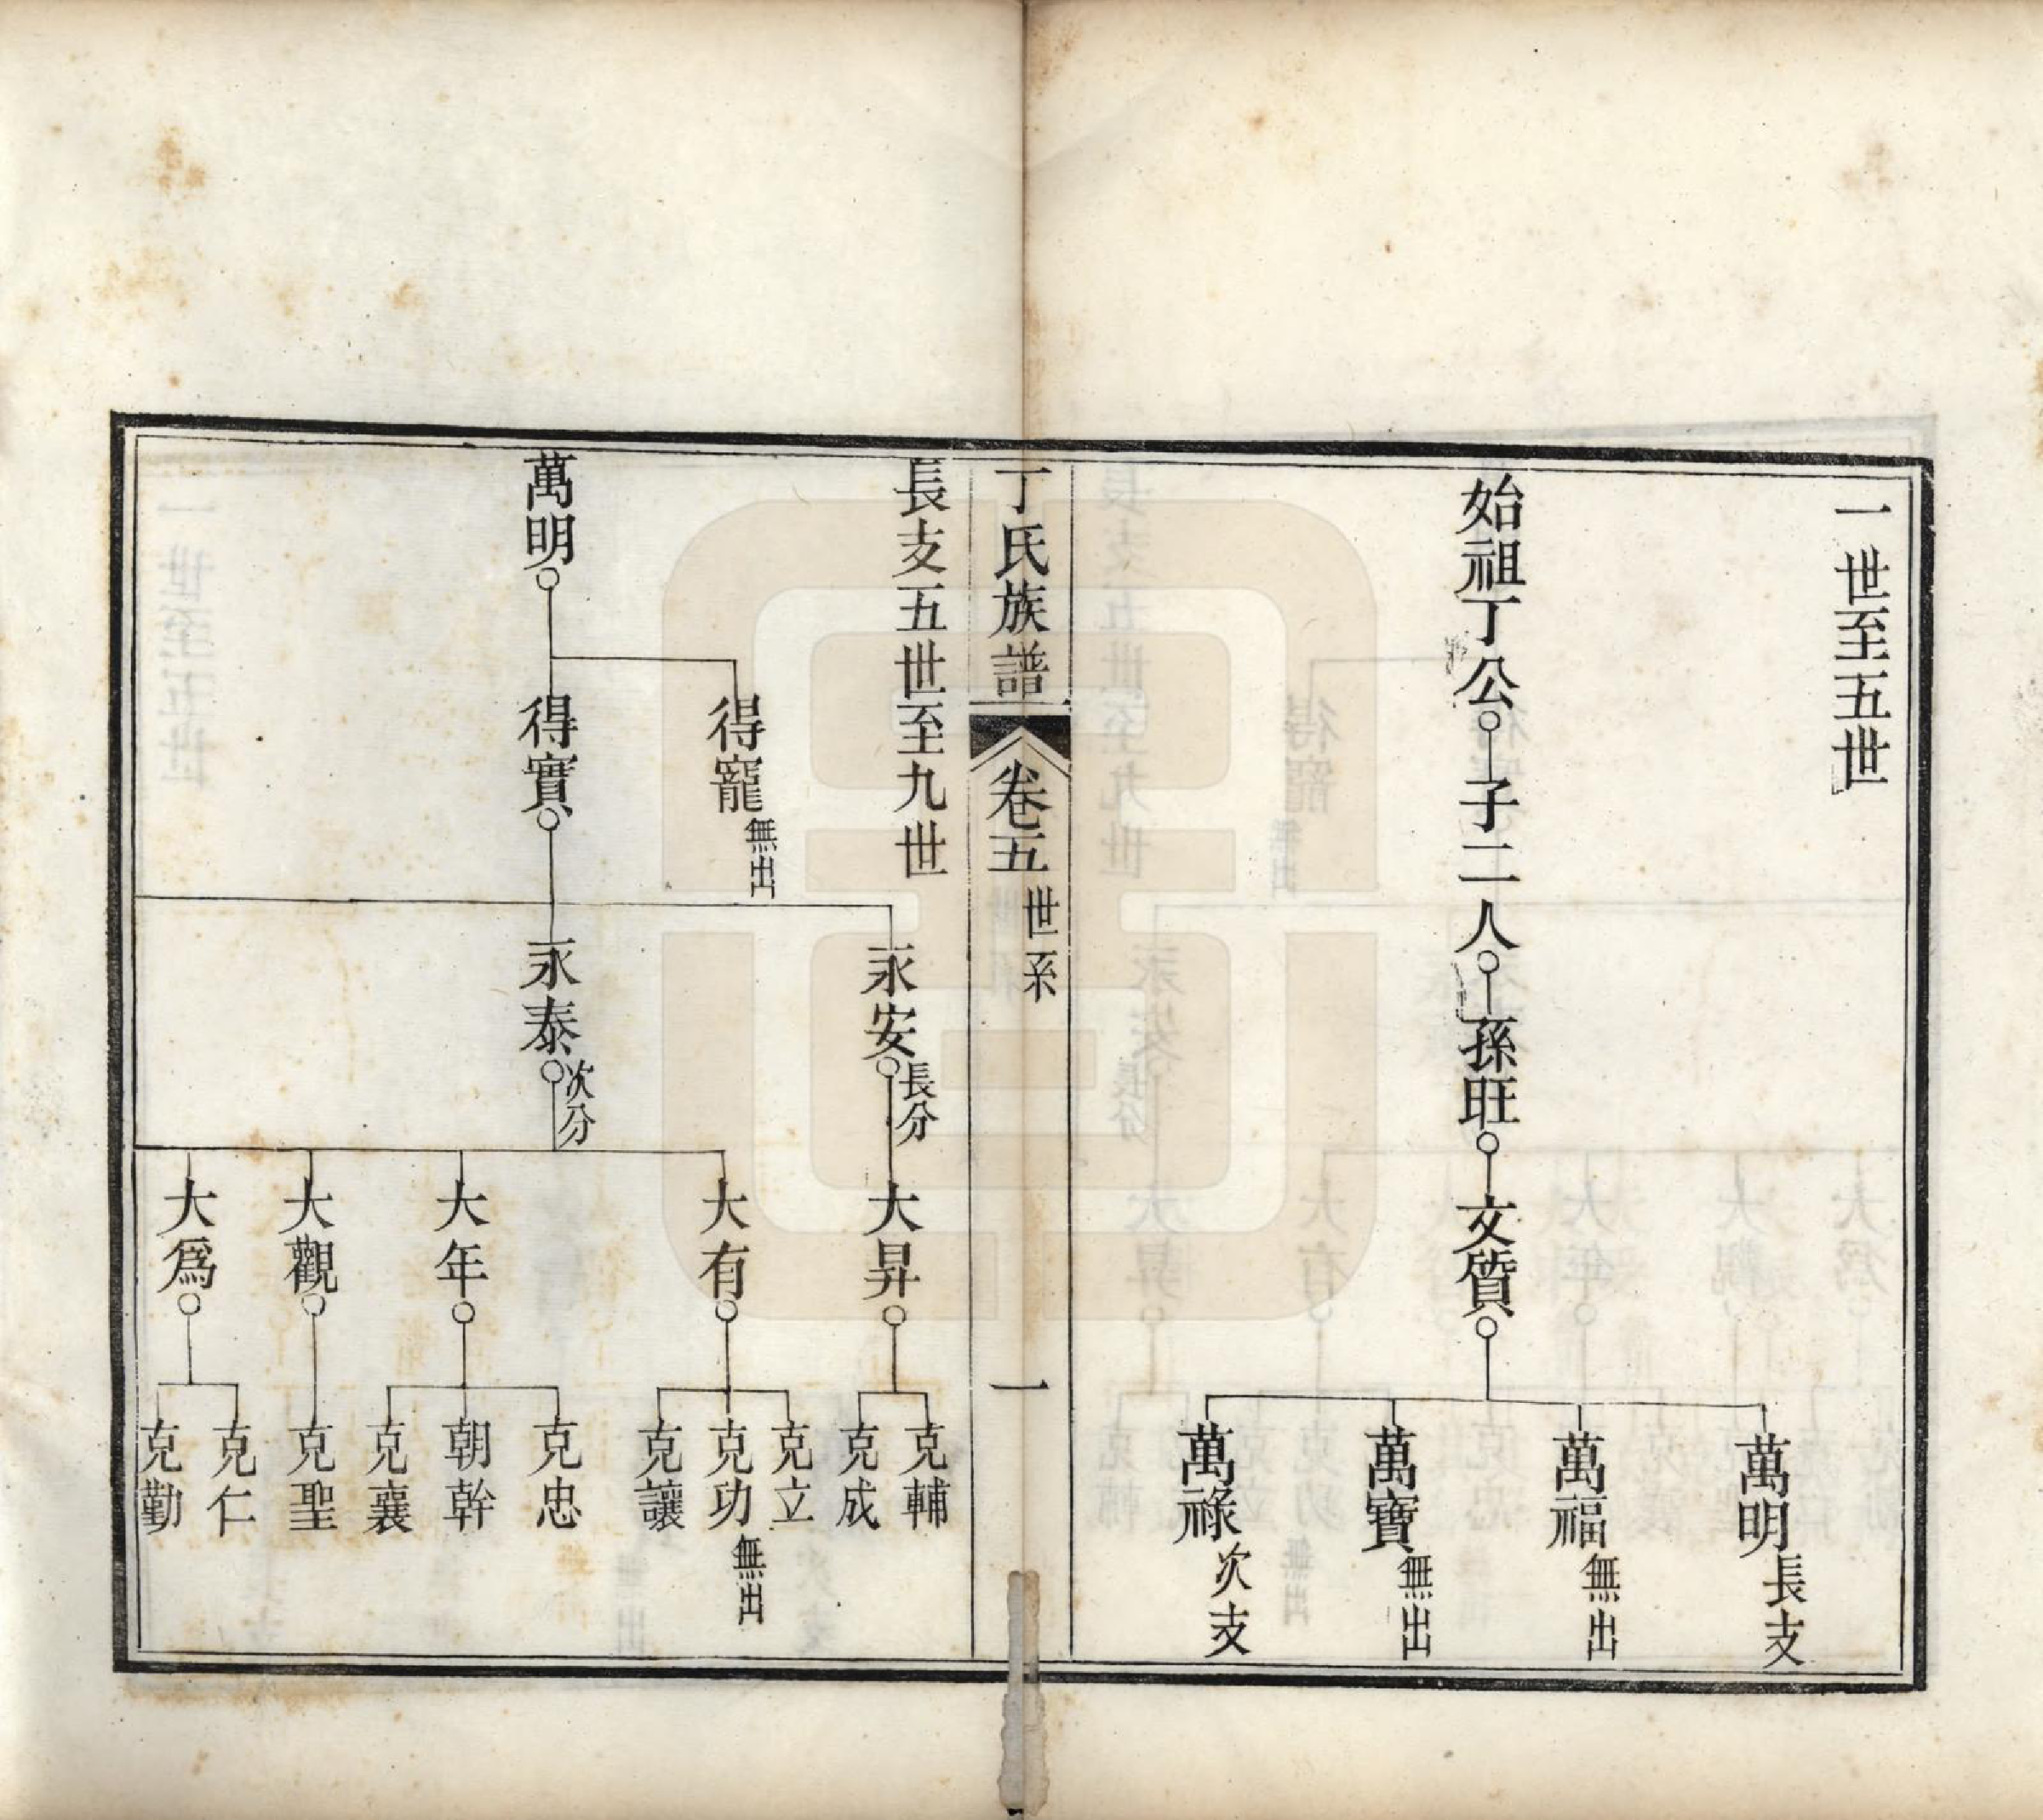 一世至五世
始祖丁公
子二人
孫旺
文質
萬明 長支
萬福 無出
萬寶 無出
萬祿 次支
丁氏族譜
卷五 世系
一
長支五世至九世
萬明
得寵 無出
得寶
永安 長分
永泰 次分
大昇
大有
大年
大觀
大爲
克輔
克成
克立
克功 無出
克讓
克忠
朝幹
克襄
克聖
克仁
克勤